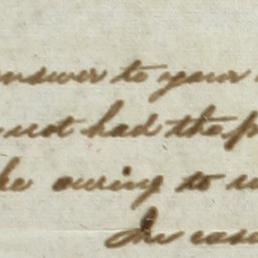 answer to your
not had the
owing to
In case